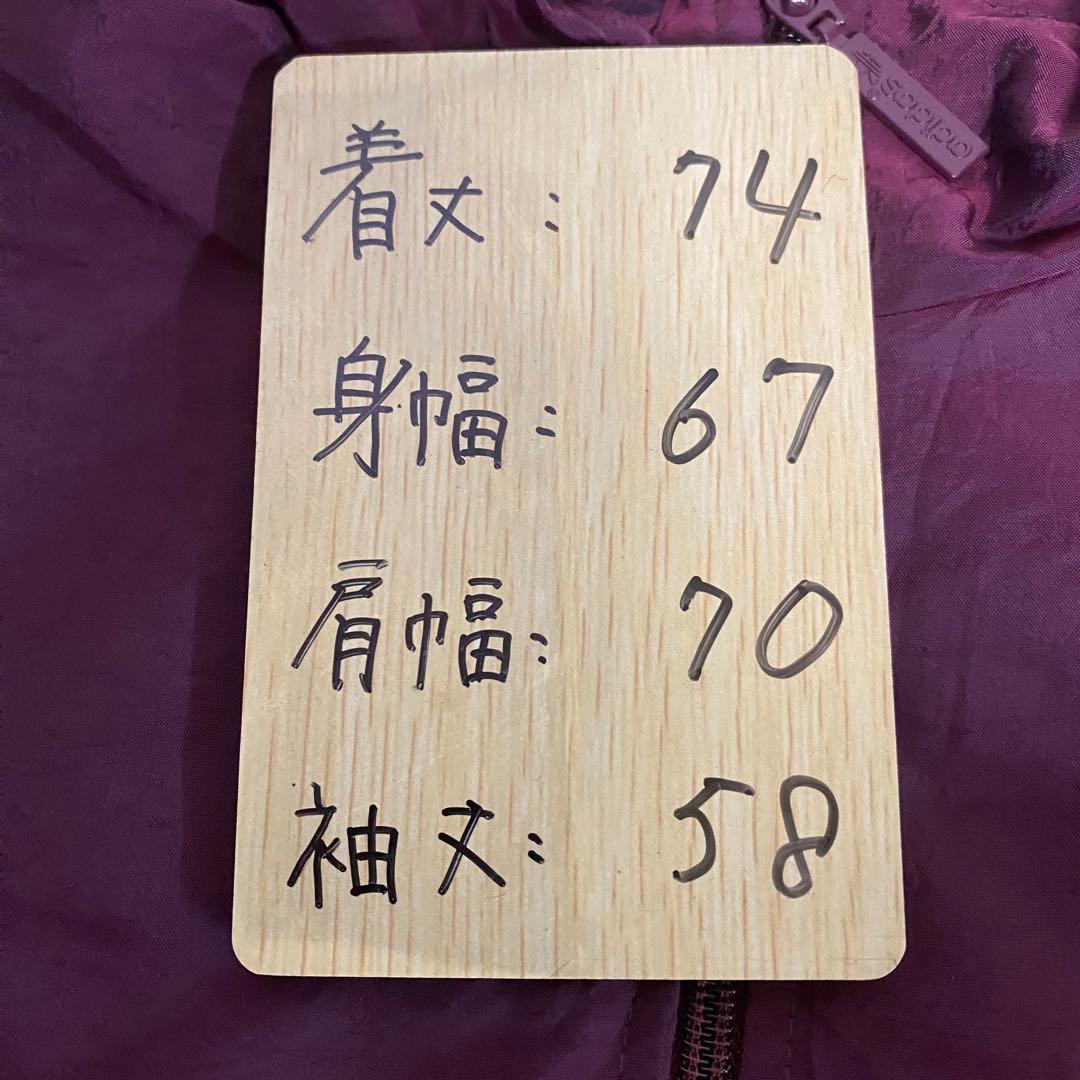 adidas
着丈: 74
身幅: 67
肩幅: 70
袖丈: 58